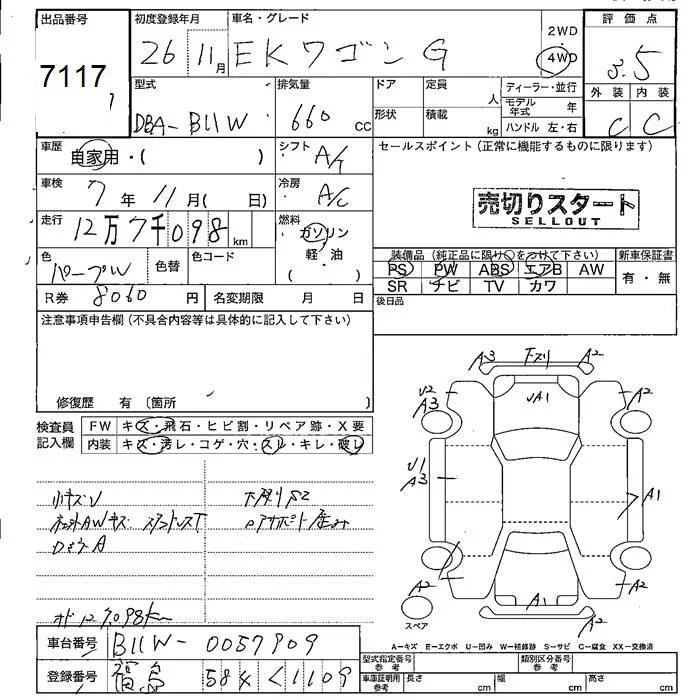 出品番号
7117
初度登録年月
26 11月
車名・グレード
EKワゴンG
2WD
4WD
評価点
3.5
型式
DBA-B11W
排気量
660 cc
ドア
定員
人
形状
積載
kg
ディーラー・並行
モデル年式 年
ハンドル 左・右
外装 内装
C C
車歴
自家用・( )
シフト
A/T
セールスポイント(正常に機能するものに限ります)
車検
7年 11月( 日)
冷房
A/C
売切りスタート
SELLOUT
走行
12万7千098km
燃料
ガソリン
軽・油
( )
装備品(純正品に限り○をつけて下さい)
新車保証書
PS PW ABS エアB AW
有・無
SR ナビ TV カワ
色
パープルW
色替
色コード
R券 8060円
名変期限 月 日
後日品
注意事項申告欄(不具合内容等は具体的に記入して下さい)
修復歴 有 〔箇所 〕
検査員記入欄
FW キズ・飛石・ヒビ割・リペア跡・X要
内装 キズ・汚レ・コゲ・穴・スレ・キレ・破レ
A3 下スリ A2
U2
A3
UA1
A2
U1
A3
A1
A2
A1
A2
A2
スペア
小キズU
下廻りS2
オド127098km
A-キズ E-エクボ U-凹み W-補修跡 S-サビ C-腐食 XX-交換済
車台番号 B11W-0057909
登録番号 福島 58 く1109
型式指定番号 参考
類別区分番号 参考
車庫証明用 参考
長さ cm
幅 cm
高さ cm